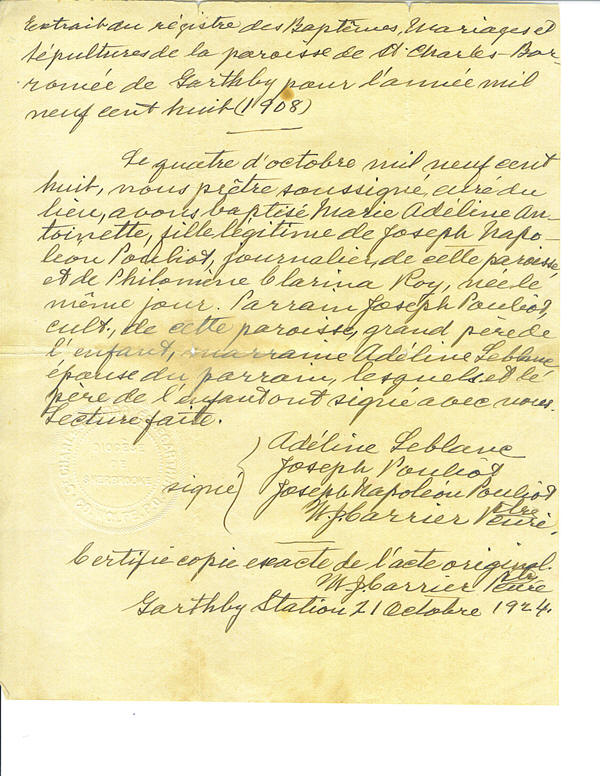 Extrait du régistre des Baptêmes, Mariages et
Sépultures de la paroisse de St Charles-Bor-
romée de Garthby pour l'année mil
neuf cent huit (1908)
Le quatre d'octobre mil neuf cent
huit, nous prêtre soussigné, curé du
lieu, avons baptisé Marie Adéline An-
toinette, fille légitime de Joseph Napo-
léon Pouliot, journalier, de cette paroisse,
et de Philomène Clarina Roy, née le
même jour. Parrain Joseph Pouliot,
cult., de cette paroisse, grand père de
l'enfant, marraine Adéline Leblanc
épouse du parrain, lesquels et le
père de l'enfant ont signé avec nous.
Lecture faite.
Adéline Leblanc
Joseph Pouliot
signé Joseph Napoléon Pouliot
W. J. Carrier Ptre Curé.
DIOCÈSE
DE
SHERBROOKE
Certifie copie exacte de l'acte original.
W J Carrier Ptre Curé
Garthby Station 21 Octobre 1924.